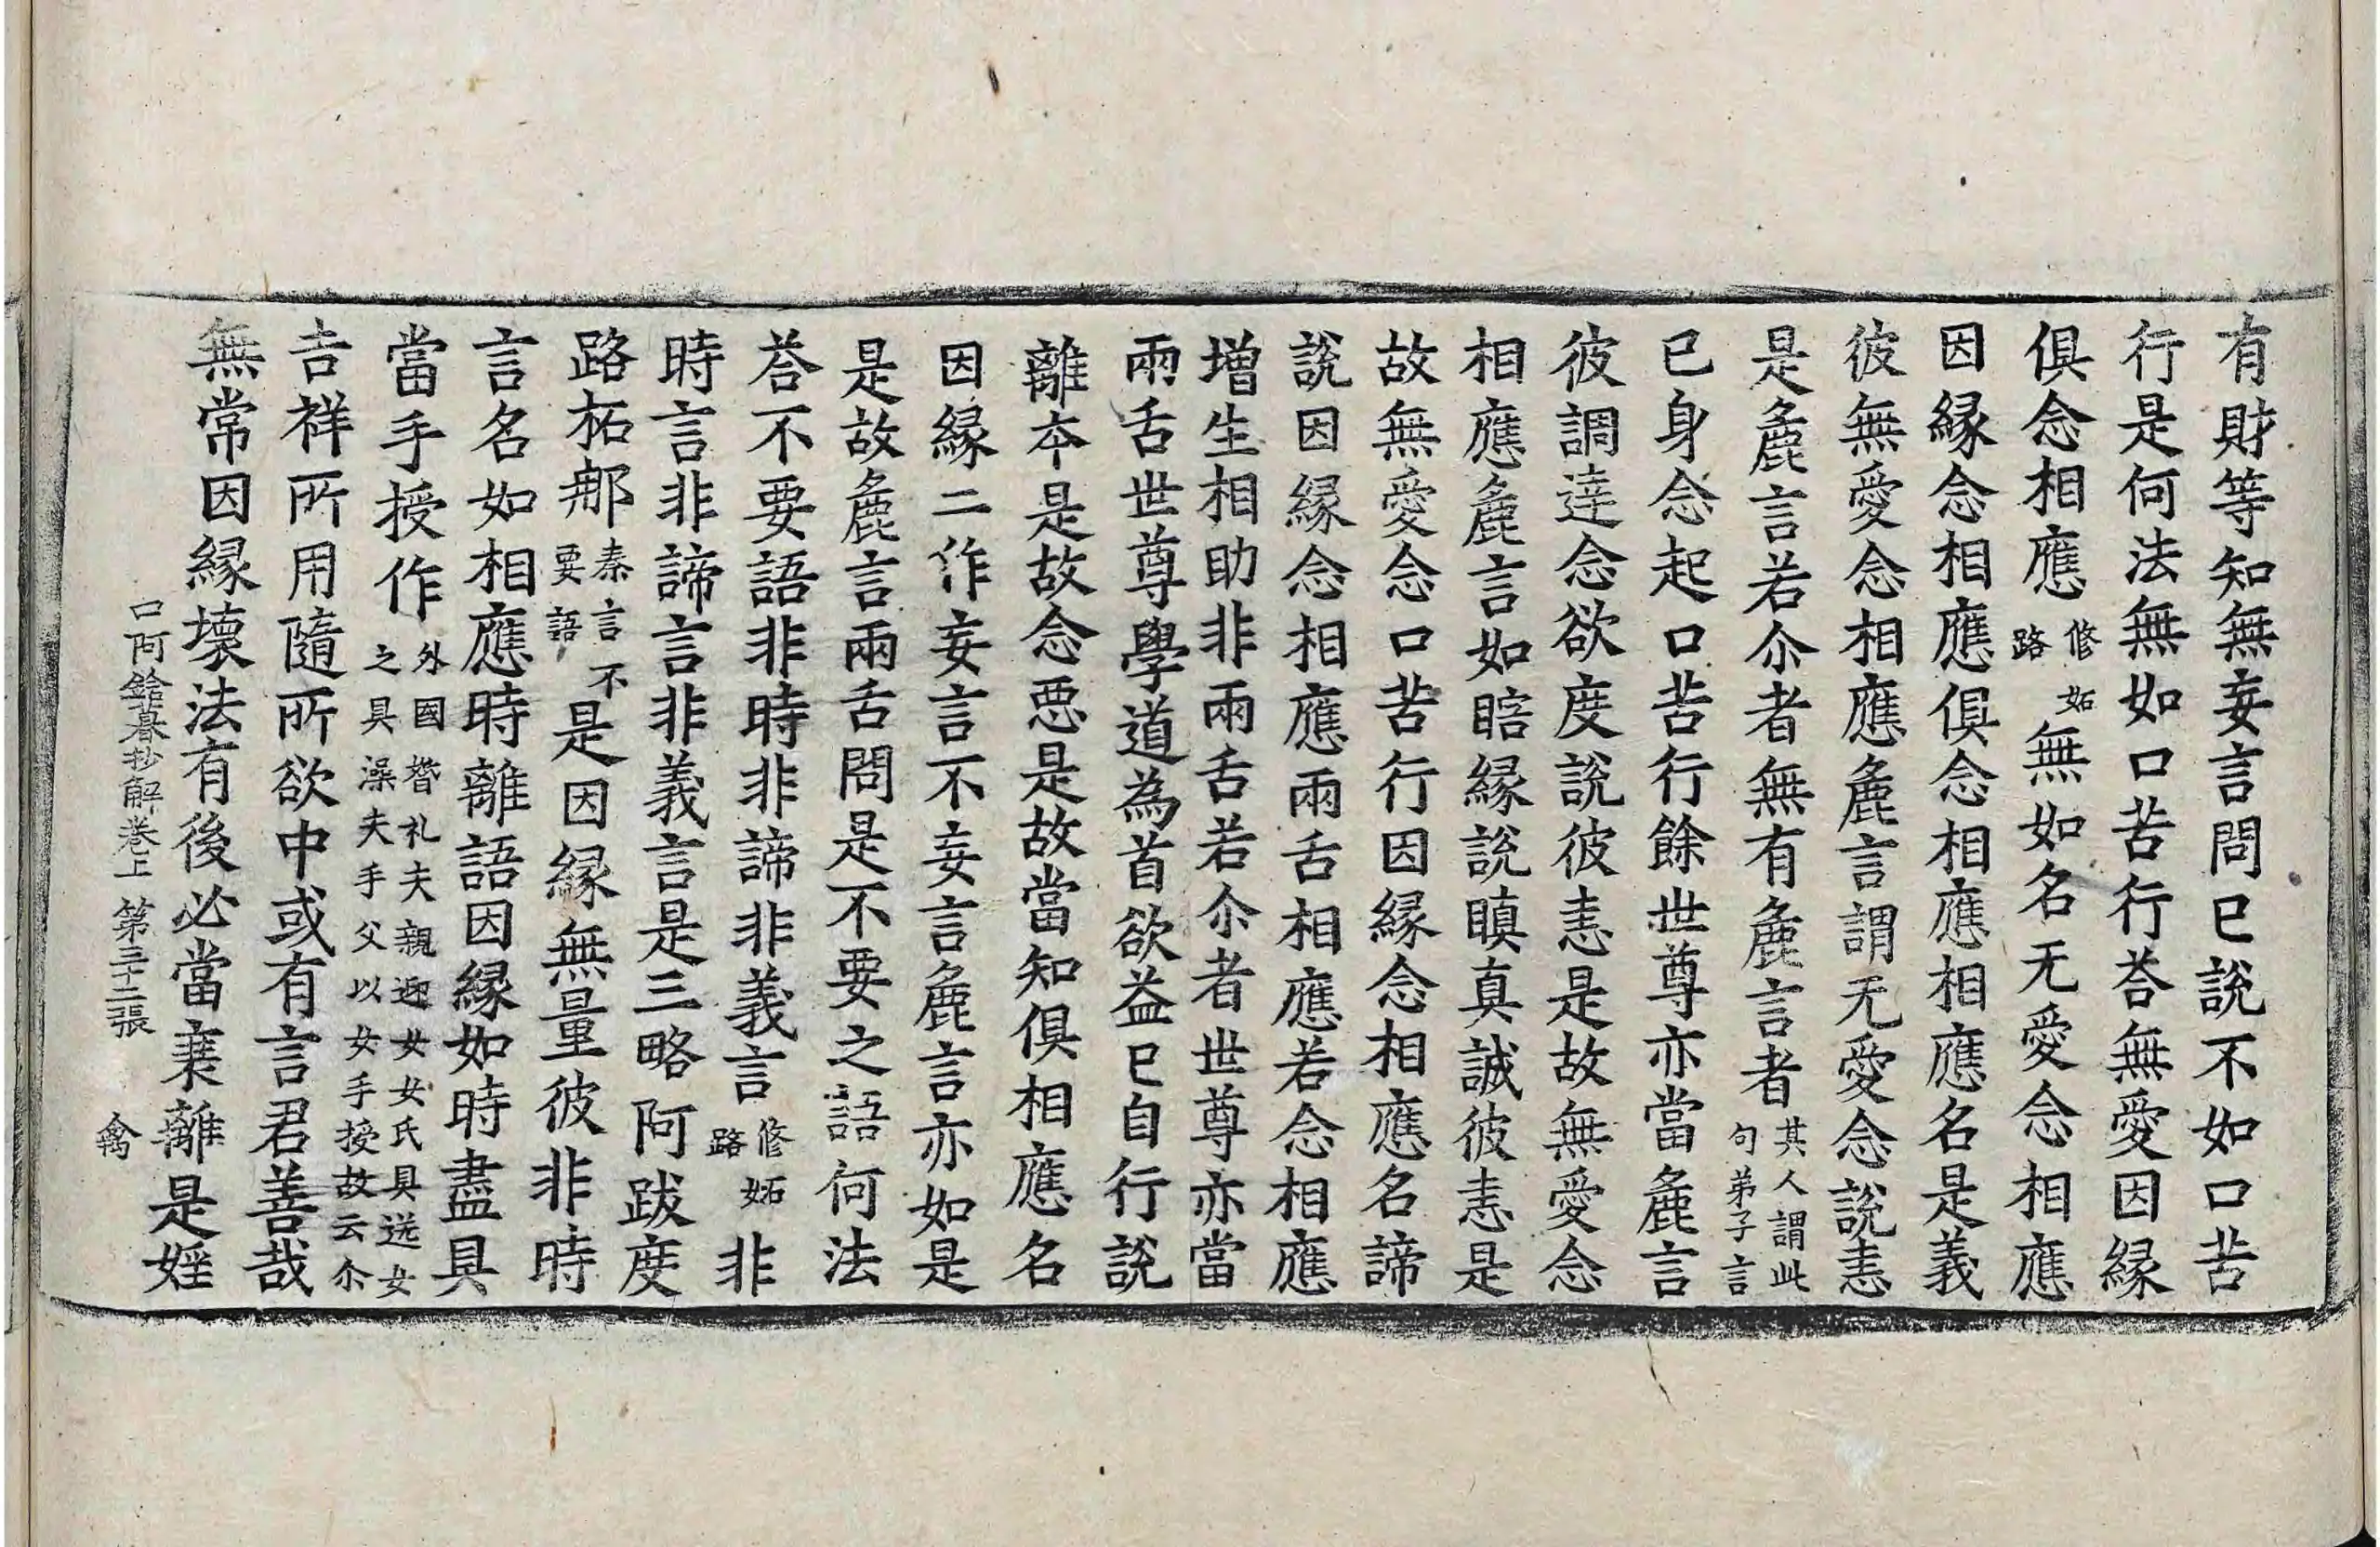 有財等知無妄言問已說不如口苦
行是何法無如口苦行荅無愛因緣
俱念相應修妬路無如名无愛念相應
因緣念相應俱念相應相應名是義
彼無愛念相應麁言謂无愛念說恚
是麁言若尒者無有麁言者其人謂此句弟子言
已身念起口苦行餘世尊亦當麁言
彼調達念欲度說彼恚是故無愛念
相應麁言如瞎緣說瞋真誠彼恚是
故無愛念口苦行因緣念相應名諦
說因緣念相應兩舌相應若念相應
增生相助非兩舌若尒者世尊亦當
兩舌世尊學道為首欲益已自行說
離本是故念惡是故當知俱相應名
因緣二作妄言不妄言麁言亦如是
是故麁言兩舌問是不要之語何法
荅不要語非時非諦非義言修妬路非
時言非諦言非義言是三略阿跋度
路柘那秦言不要語是因緣無量彼非時
言名如相應時離語因緣如時盡具
當手授作外國㜈礼夫親迎女女氏具送女之具澡夫手父以女手授故云尒
吉祥所用隨所欲中或有言君善哉
無常因緣壞法有後必當棄離是婬
口阿鋡暮抄解卷上 第三十二張 禽